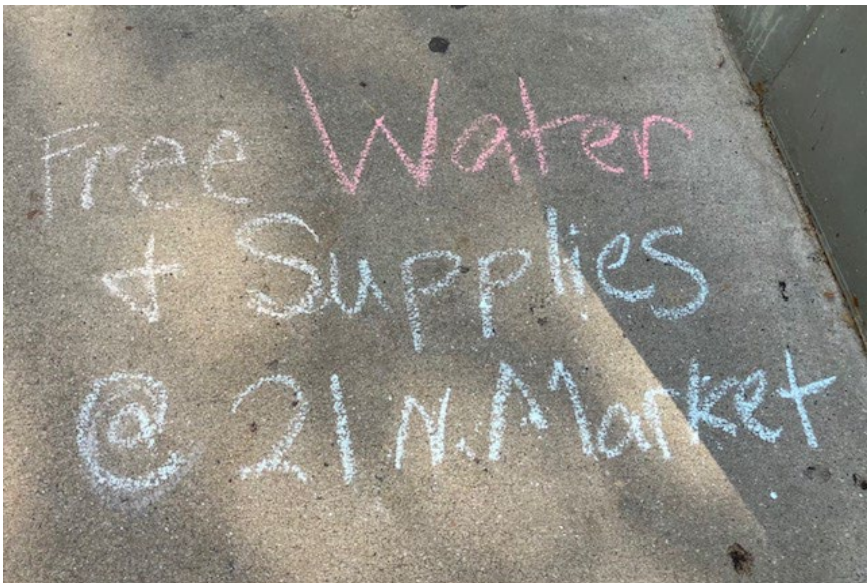 Free Water
+ Supplies
@ 21 N. Market